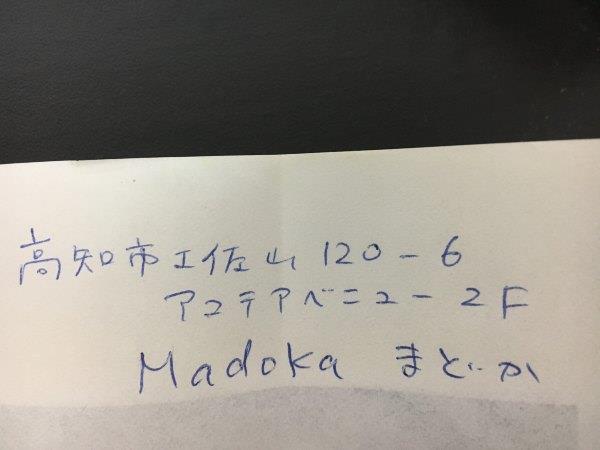 高知市工佐山 120-6
アコテアベニュー 2F
Madoka まどか